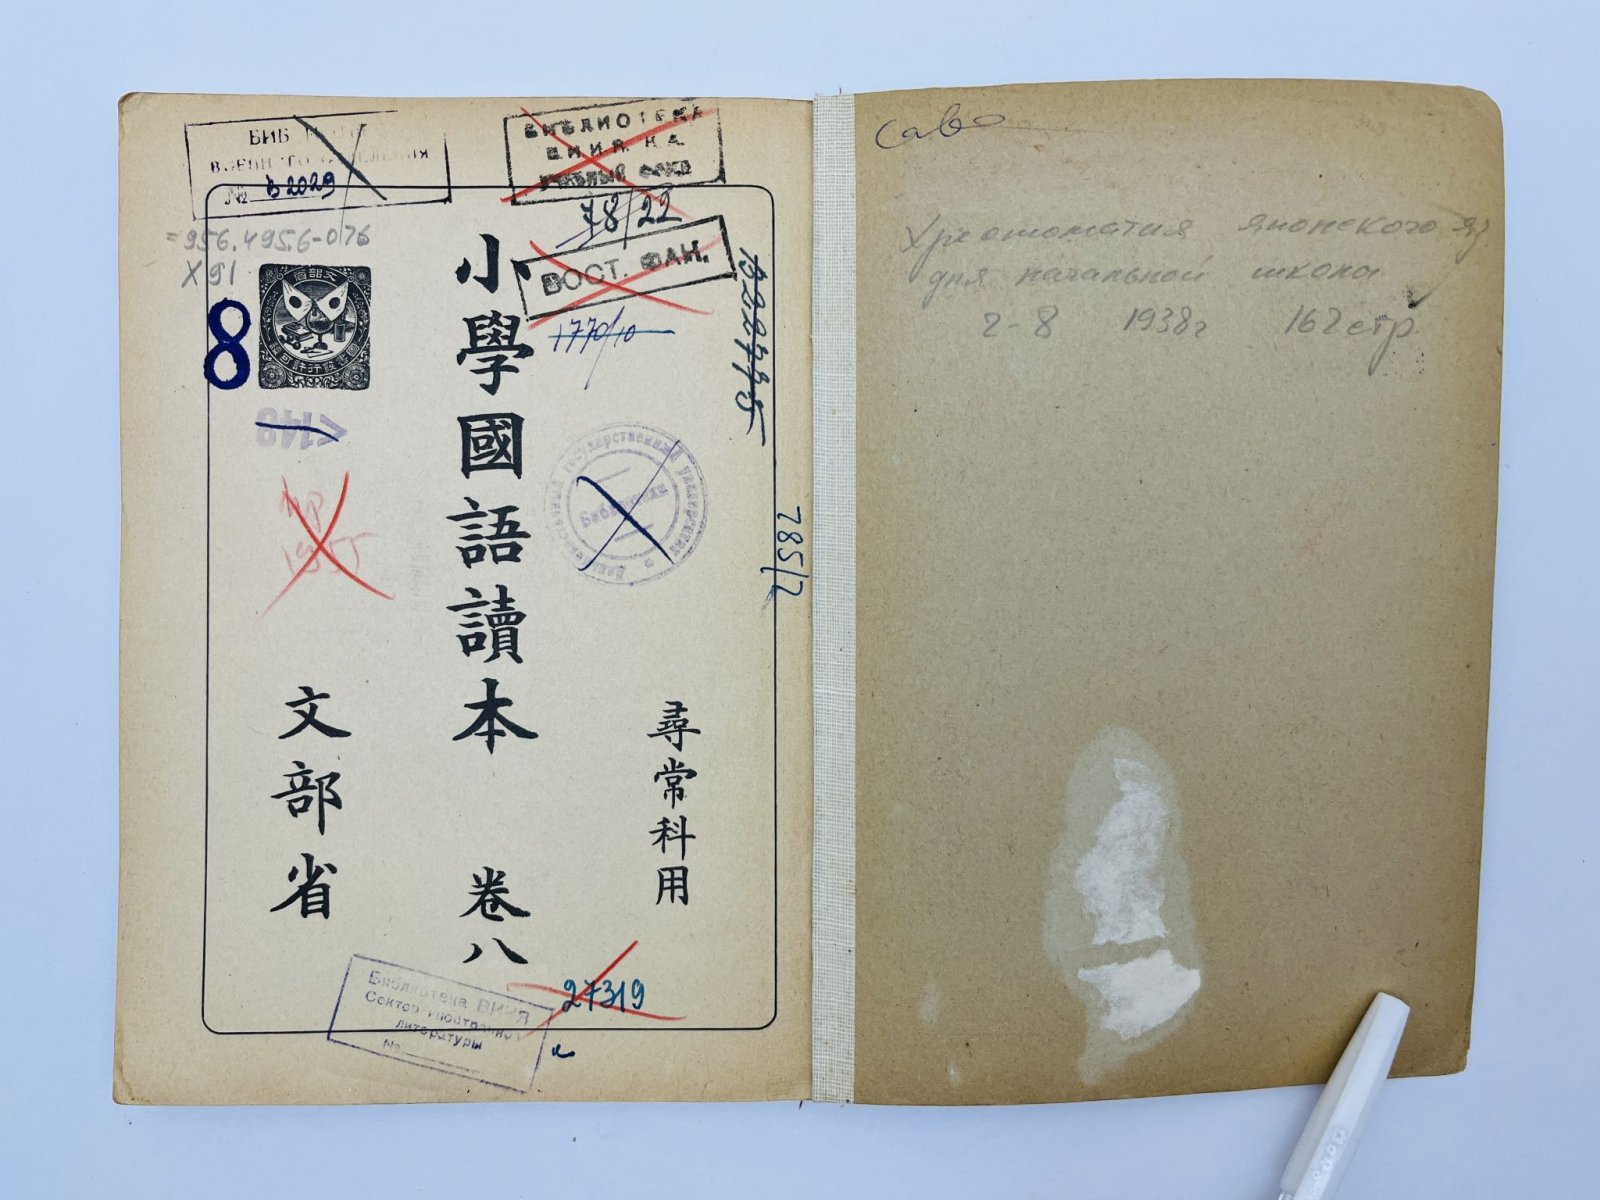 БИБ
№ в 2029
БИБЛИОТЕКА
В.И.И.Я. К.А.
УЧЕБНЫЙ ФОНД
78/22
=956.495.6-076
X91
ВОСТ. ФАК.
1770/10
8
文部省
<148
尋常科用
小學國語讀本 卷八
文部省
государственный университет
Библиотека
785/2
Библиотека ВИИЯ
Сектор иностранной
литературы
№
27319
Хрестоматия японского яз
для начальной школы
2-8 1938г 162 стр.